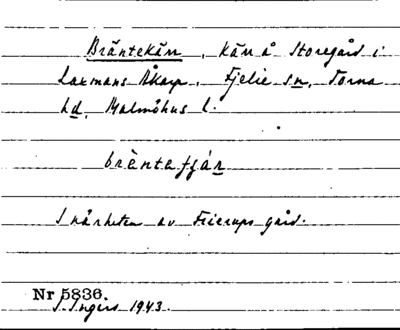 Bräntekärr, kärr å Storegård i
Laxmans Åkarp, Fjelie sn, Torna
hd, Malmöhus l.
I närheten av Frierups gård.
Nr 5836.
I. Ingers 1943.